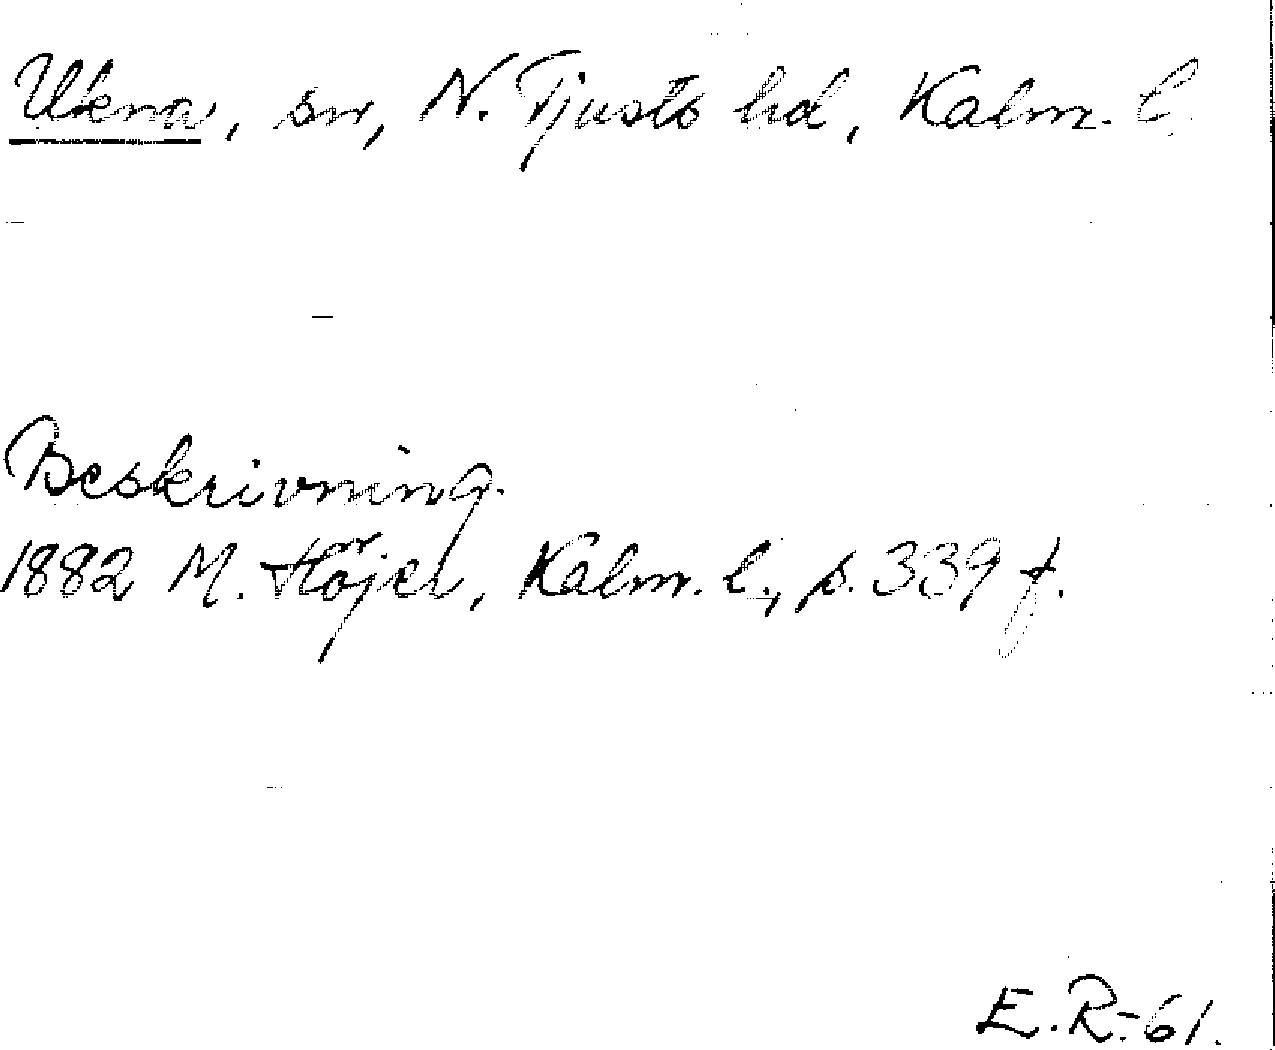 Ukna, sn, N. Tjusts hd, Kalm. l.
Beskrivning.
1882 M. Höjer, Kalm. l., s. 339 f.
E.R.-61.